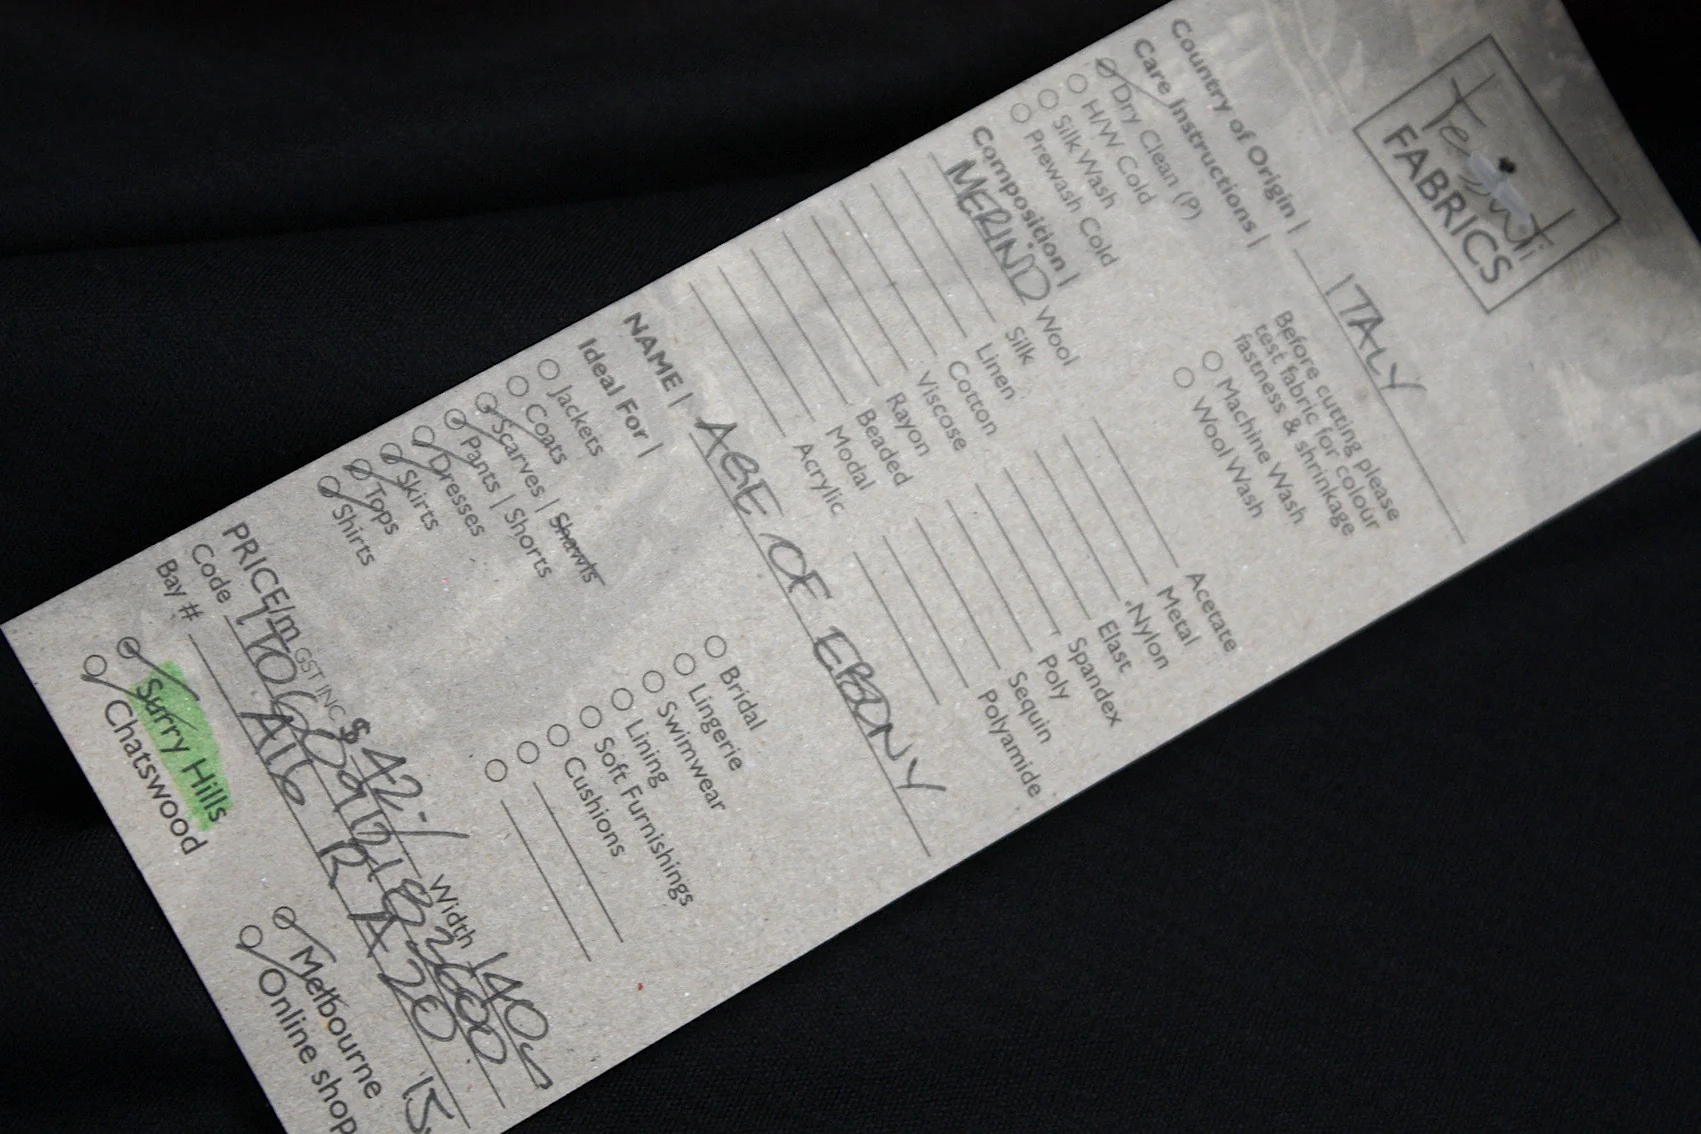 Tessuti
FABRICS
Country of Origin | ITALY
Care Instructions |
Before cutting please
test fabric for colour
fastness & shrinkage
Dry Clean (P)
H/W Cold
Silk Wash
Prewash Cold
Machine Wash
Wool Wash
Composition |
MERINO Wool
Silk
Linen
Cotton
Viscose
Rayon
Beaded
Modal
Acrylic
Acetate
Metal
Nylon
Elast
Spandex
Poly
Sequin
Polyamide
NAME | AGE OF EBONY
Ideal For |
Jackets
Coats
Scarves | Shawls
Pants | Shorts
Dresses
Skirts
Tops
Shirts
Bridal
Lingerie
Swimwear
Lining
Soft Furnishings
Cushions
PRICE/m GST INC $ 42-/ Width 140
Code
Bay # A16 R A20 15
Surry Hills
Chatswood
Melbourne
Online shop